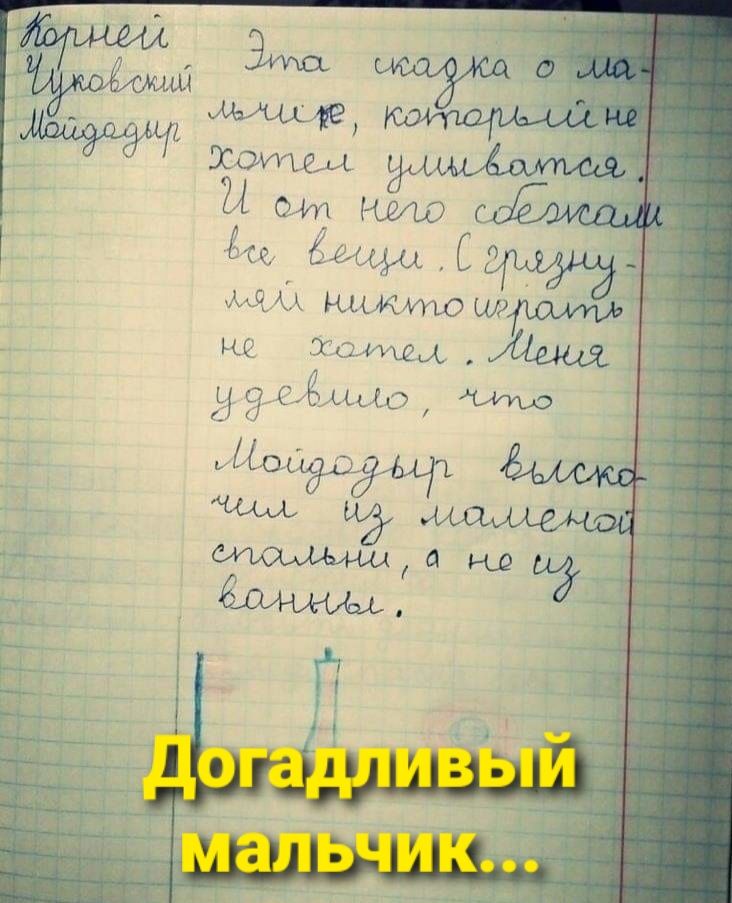 Корней
Чуковский
Мойдодыр
Эта скадка о ма-
льчике, который не
хотел умыватся.
И от него сбежали
все вещи. С грязну-
ляй никто играть
не хотел. Меня
удевило, что
Мойдодыр выско-
чил из маменой
спальни, а не из
ванны.
Догадливый
мальчик...